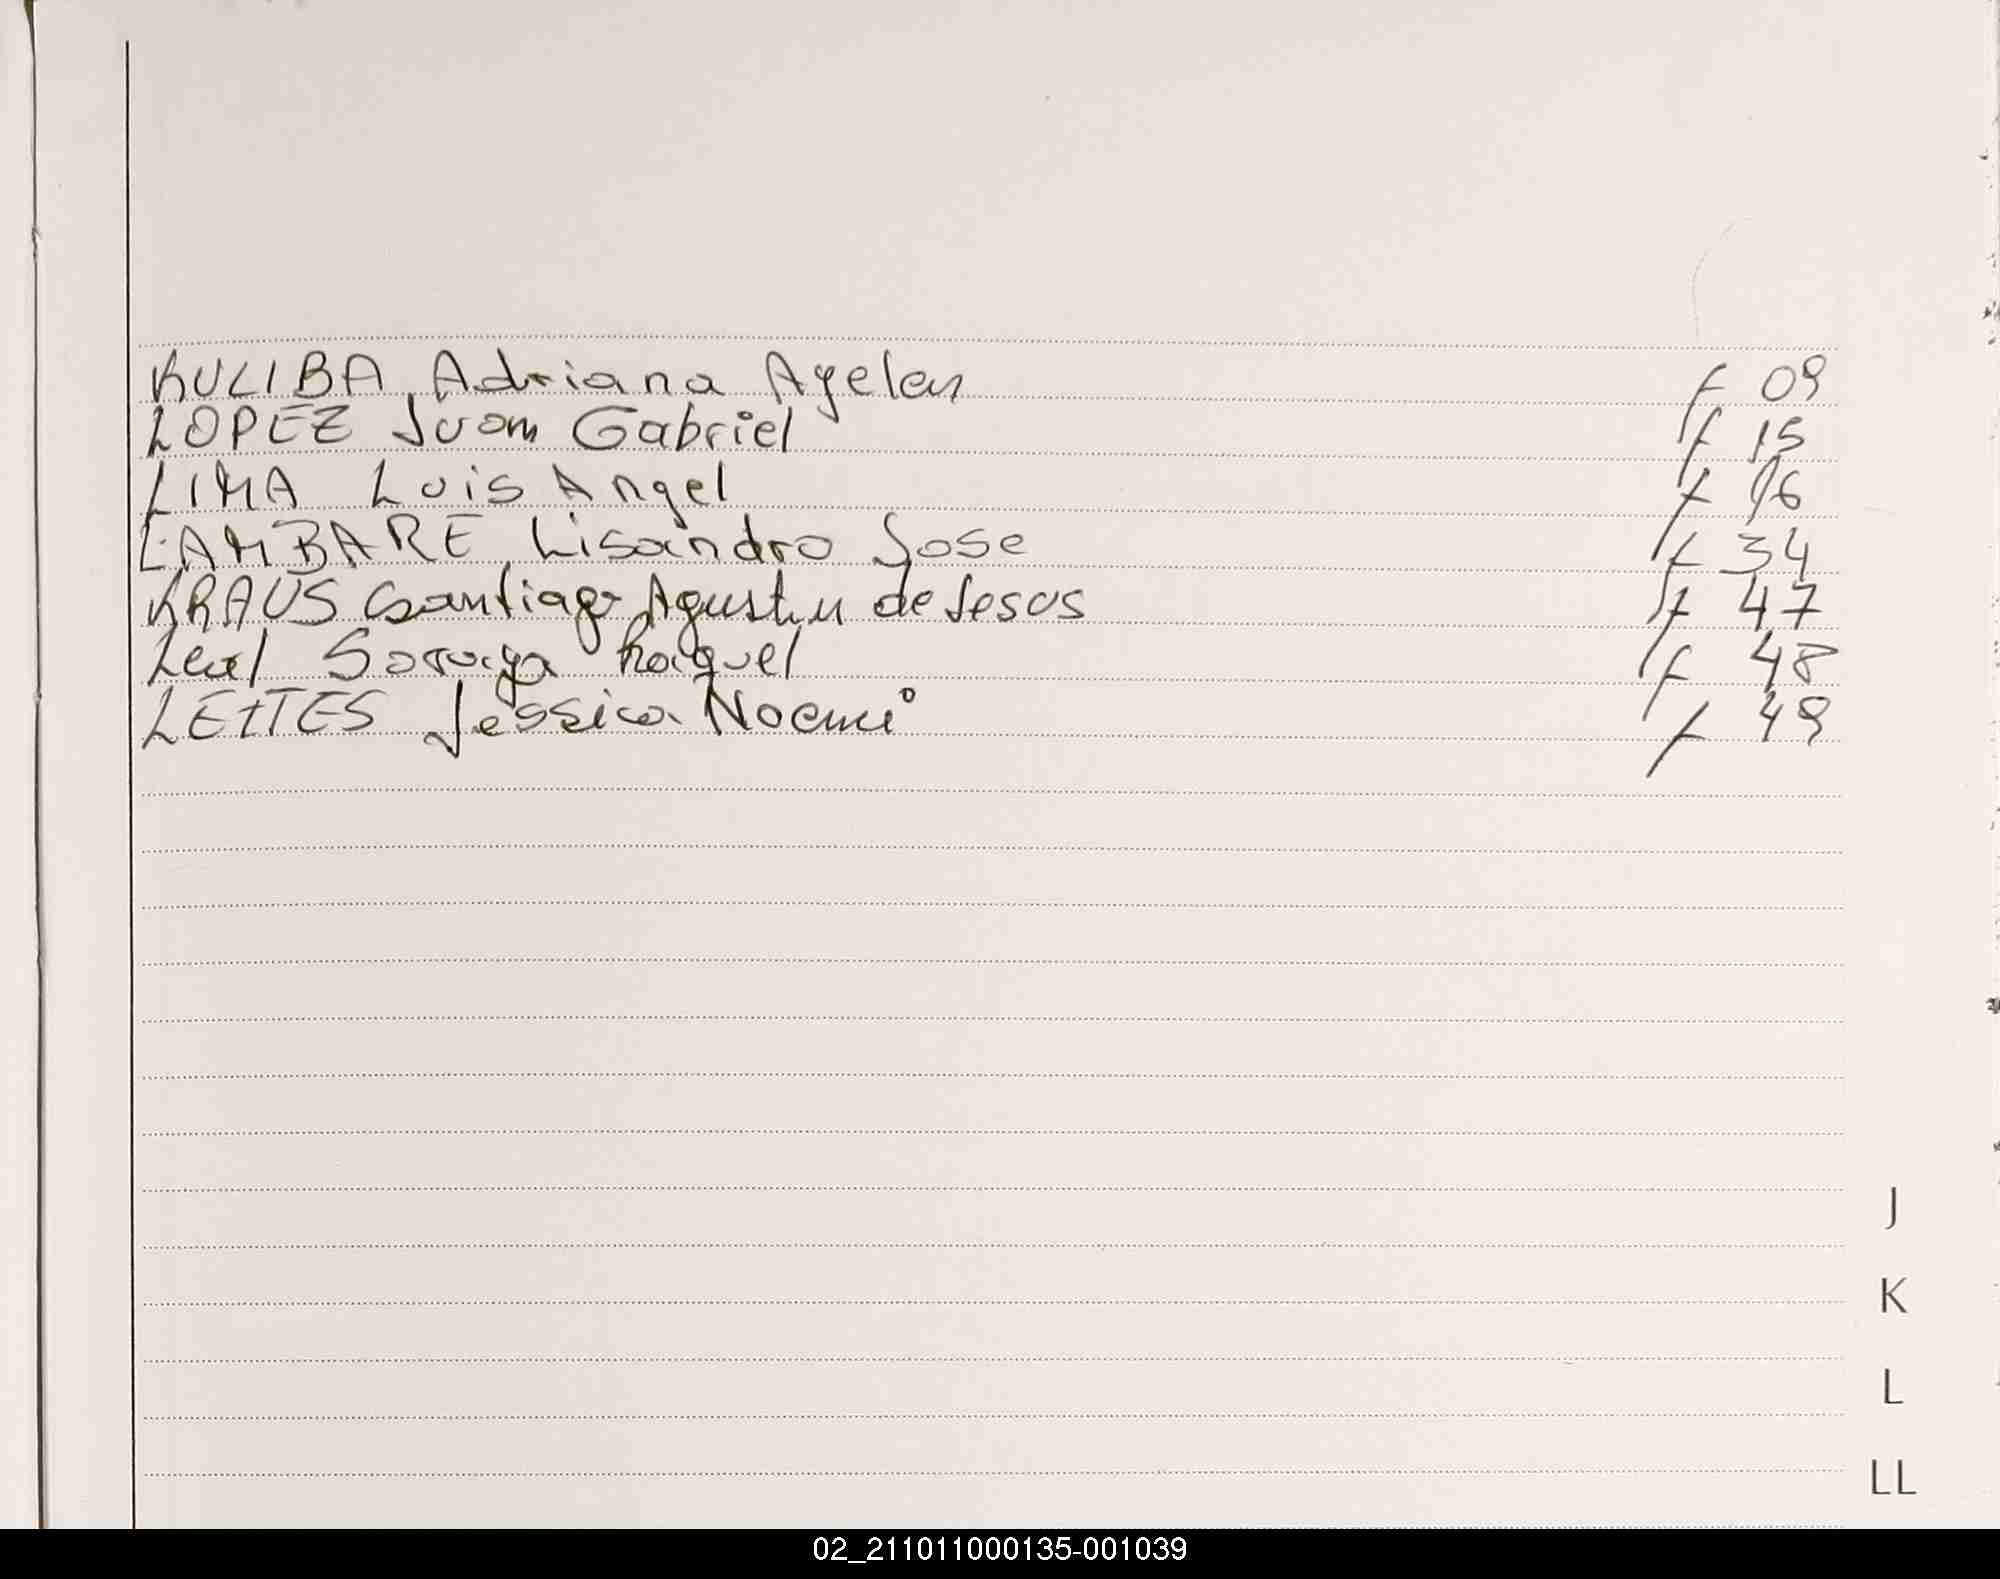 KULIBA Adriana Ayelen f 09
LOPEZ Juan Gabriel f 15
LIMA Luis Angel f 16
LAMBARE Lisandro Jose f 34
KRAUS Santiago Agustin de Jesus f 47
Leal Soraya Raquel f 48
LEITES Jessica Noemi f 49
J
K
L
LL
02_211011000135-001039